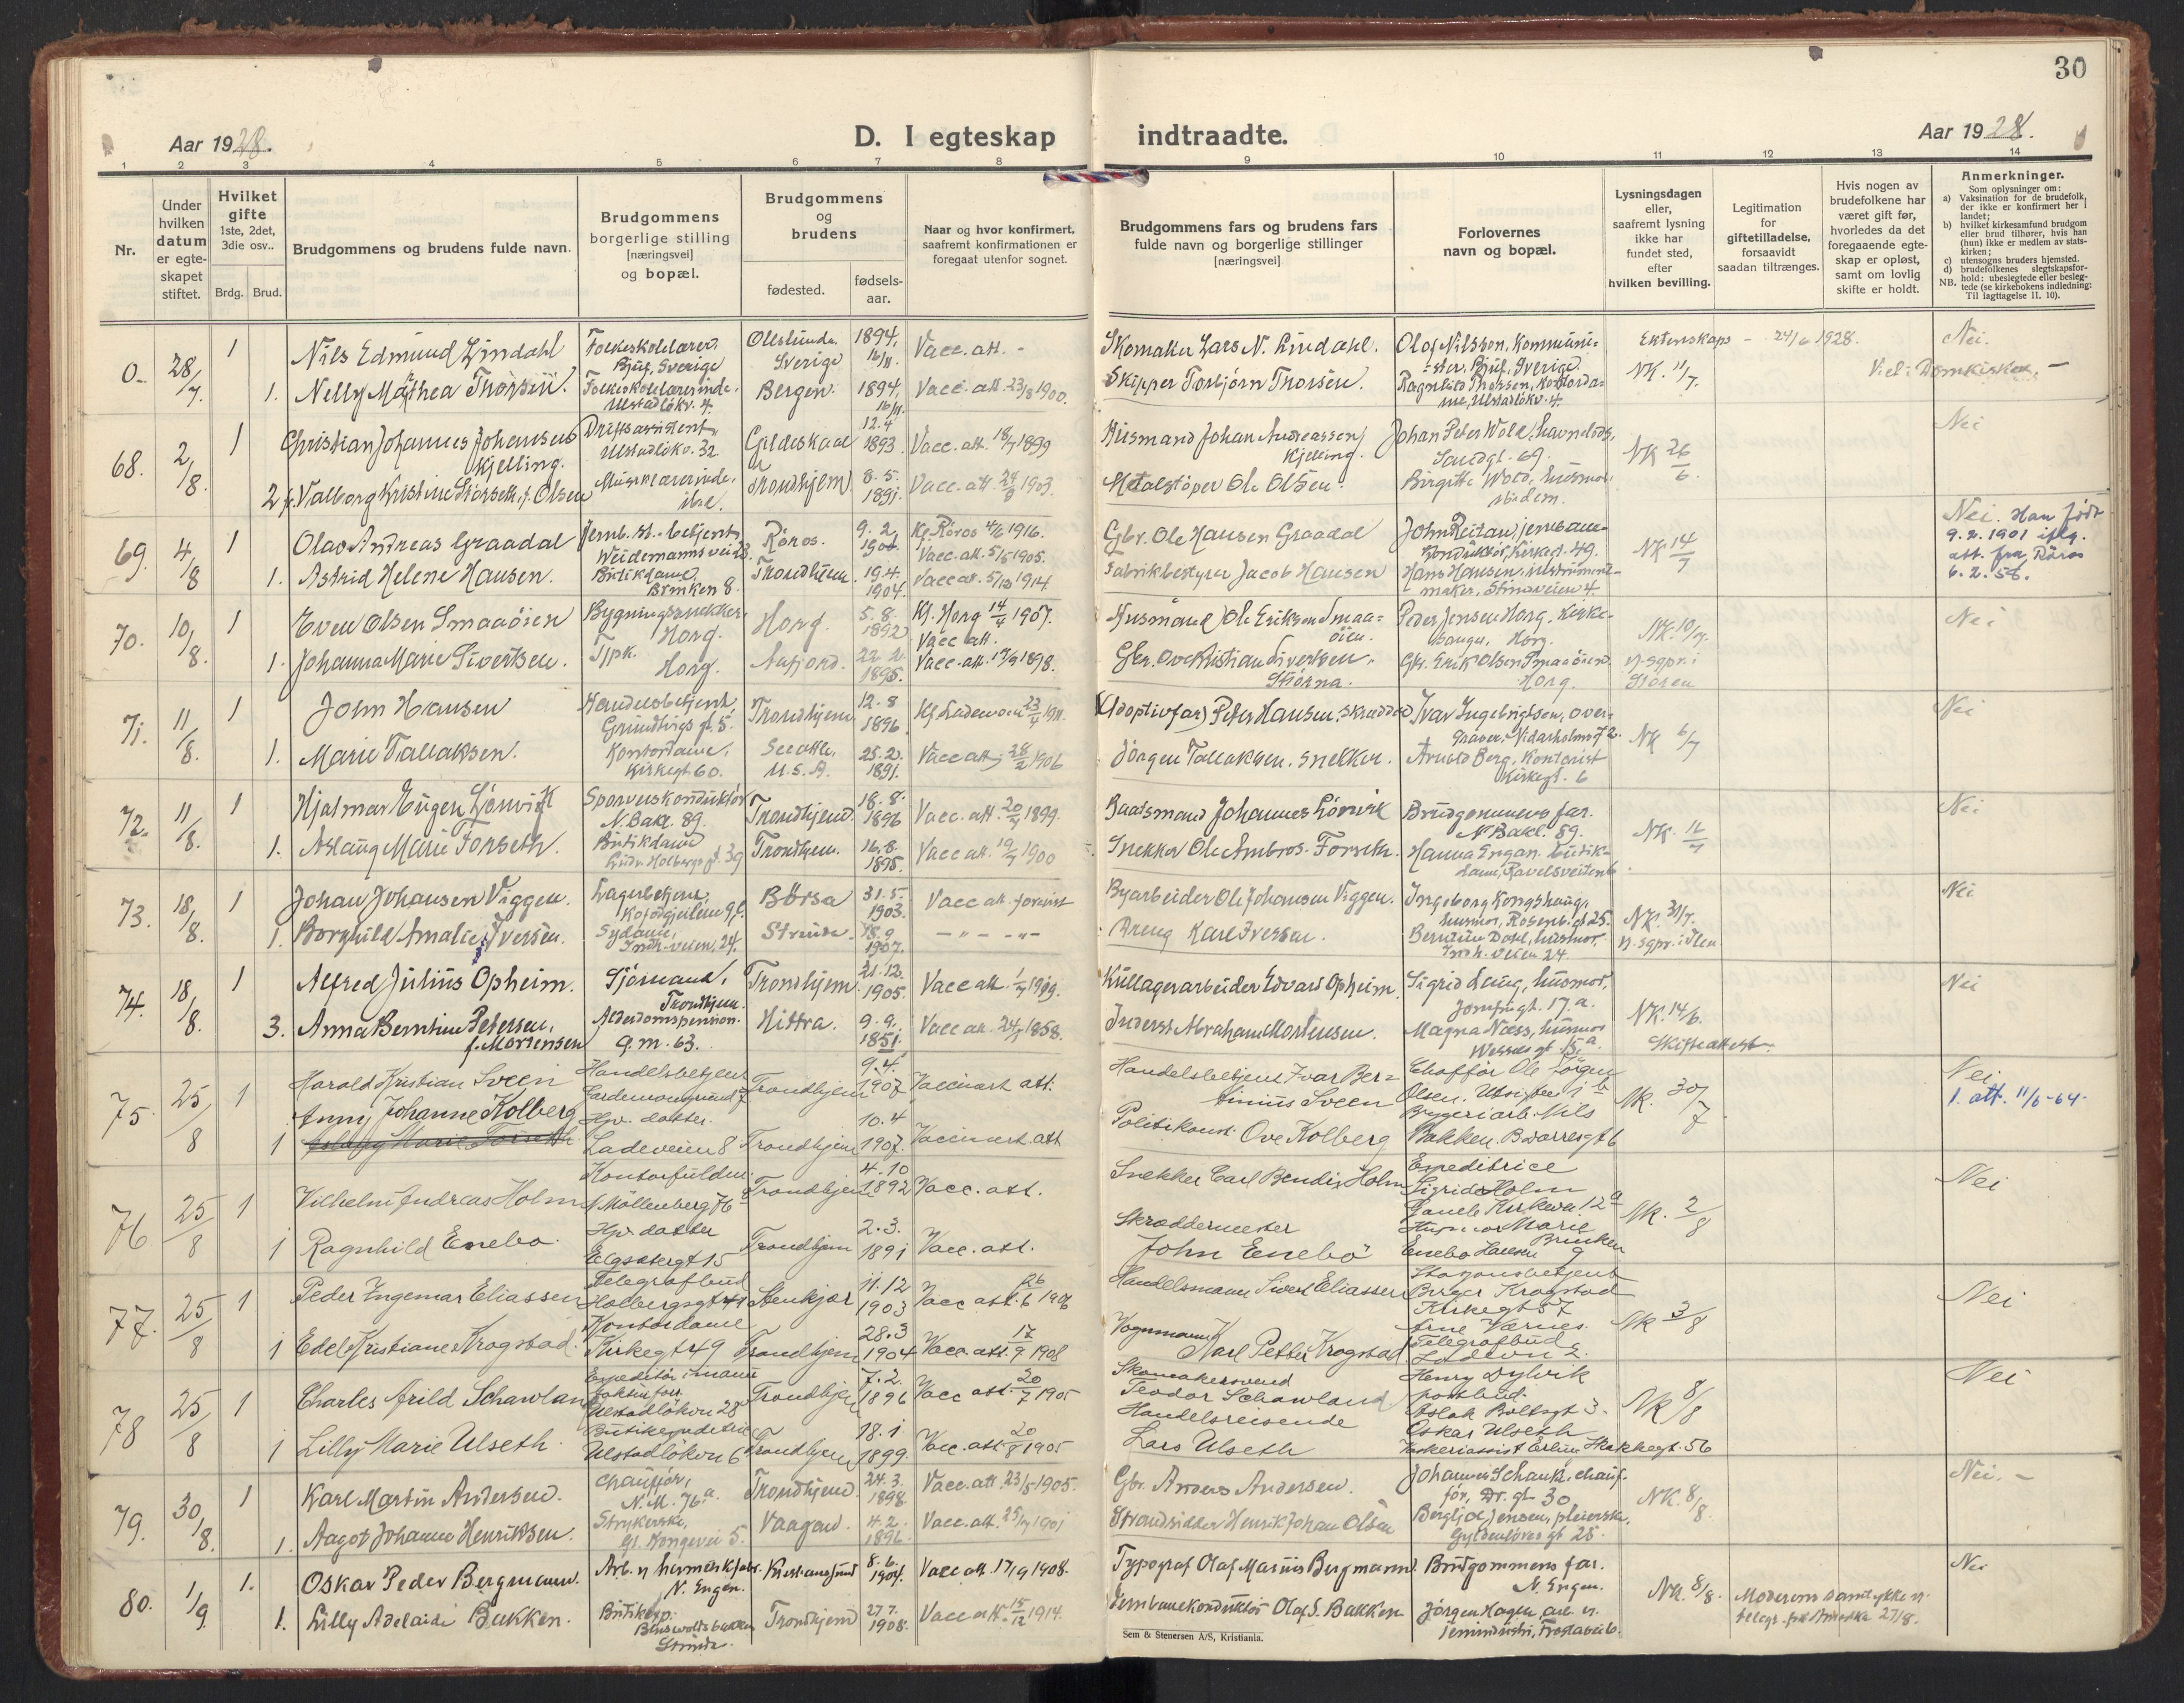 30
Aar 1928.
D. I egteskap
indtraadte.
Aar 1928.
1 2 3 4 5 6 7 8 9 10 11 12 13 14
Nr.
Under hvilken datum er egteskapet stiftet.
Hvilket gifte 1ste, 2det, 3die osv..
Brdg. Brud.
Brudgommens og brudens fulde navn.
Brudgommens borgerlige stilling [næringsvei] og bopæl.
Brudgommens og brudens
fødested.
fødsels-aar.
Naar og hvor konfirmert, saafremt konfirmationen er foregaat utenfor sognet.
Brudgommens fars og brudens fars fulde navn og borgerlige stillinger [næringsvei]
Forlovernes navn og bopæl.
Lysningsdagen eller, saafremt lysning ikke har fundet sted, efter hvilken bevilling.
Legitimation for giftetilladelse, forsaavidt saadan tiltrænges.
Hvis nogen av brudefolkene har været gift før, hvorledes da det foregaaende egteskap er opløst, samt om lovlig skifte er holdt.
Anmerkninger.
Som oplysninger om:
a) Vaksination for de brudefolk, der ikke er konfirmert her i landet;
b) hvilket kirkesamfund brudgom eller brud tilhører, hvis han (hun) ikke er medlem av statskirken;
c) utensogns bruders hjemsted.
d) brudefolkenes slegtskapsforhold: ubeslegtede eller beslegtede (se kirkebokens indledning: Til iagttagelse II. 10).
NB.
0. 28/7. 1 Nils Edmund Lindahl Folkeskolelærer, Bjuf, Sverige Sverige 1894, 16/11. Vacc. att. - Skomaker Lars N. Lindahl. Olof Nilsson, Bjuf, Sverige. 24/6 1928. Nei.
1. Nelly Mathea Thorsen. Folkeskolelærerinde, Ulstadløkv. 4. Bergen. 1894, Vacc. att. 23/8 1900. Skipper Torbjørn Thorsen. Ragnhild Thorsen, Ulstadløkv. 4. NK. 11/7. Viet i Domkirken. -
68. 2/8. 1 Christian Johannes Johansen Kjelling. Driftsassistent, Ulstadløkv. 32. Gildeskaal 12.4 1893 Vacc. att. 18/7 1899 Husmand Johan Andreassen Kjelling. Johan Peter Wold, havnelods, Sandgt. 69. NK 26/6. Nei
2 Valborg Kristine Størseth, f. Olsen Musiklærerinde, ibd. Trondhjem 8.5. 1891. Vacc. att. 24/8 1903. Metalstøper Ole Olsen. Birgitte Wold, husmor, ibidem.
69. 4/8 1 Olav Andreas Graadal Jernb. st. betjent, Weidemannsvei 23. Røros. 9.2. 1901 Kf. Røros 4/6 1916. Vacc. att. 5/5 1905. Gbr. Ole Hansen Graadal John Reitan, jernbanekonduktør, Kirkegt. 49. NK 14/7 Nei. Han født 9.2.1901 iflg. att. fra Røros 6.2.58.
1. Astrid Helene Hansen. Butikdame, Brinken 8. Trondhjem 19.4. 1904. Vacc. att. 5/12 1914 Fabrikbestyrer Jacob Hansen Hans Hansen, instrumentmaker, Stinaveien 4.
70. 10/8. 1 Even Olsen Smaaøien Bygningssnekker, Horg. Horg. 5.8. 1892 Kf. Horg 14/4 1907. Vacc att. Husmand Ole Eriksen Smaaøien. Peder Jensen Horg, Kirkesanger, Horg. NK. 10/7. Nei
1. Johanna Marie Sivertsen. Tjpk. Horg. 22.2. 1895. Vacc. att. 17/9 1898. Gbr. Ove Kristian Sivertsen, Stjørna. Gbr. Erik Olsen Smaaøien Horg. n. sgpr. i Støren
71. 11/8. 1 John Hansen Handelsbetjent, Grundtvigs gt. 5. Trondhjem 12.8 1896 Kf. Lademoen 23/4 1911. (Adoptivfar) Peter Hansen, skrædder Ivar Ingebrigtsen, overgraver, Nidarholms 72. NK 6/7 Nei
1. Marie Tallaksen. Kontordame, Kirkegt. 60. Seattle, U.S.A. 25.2. 1891. Vacc att. 28/2 1906 Jørgen Tallaksen, snekker. Arnold Berg, Kontorist Kirkegt. 6
72. 11/8. 1 Hjalmar Eugen Lørvik Sporveiskonduktør N. Bakl. 89. Trondhjem 18.8. 1896 Vacc. att. 20/7 1899. Baatsmand Johannes Lørvik Brudgommens far. N. Bakl. 89. NK. 16/7 Nei
1. Aslaug Marie Forseth. Butikdame Ludv. Holbergs gt. 39 Trondhjem. 16.8. 1895. Vacc att. 19/7 1900 Snekker Ole Ambros. Forseth. Hanna Engan. butikdame, Ravelsveiten 6.
73. 18/8. 1 Johan Johansen Viggen. Lagerbetjent, Børsa 31.5. 1903. Vacc att. forevist Byarbeider Ole Johansen Viggen. Ingeborg Kongshaug, husmor, Rosenb. gt 25. NK. 31/7. n. sgpr. i Ilen Nei
1. Borghild Amalie Iversen. Sydame, Indh.veien, 24. Strinda 18.9. 1907. — " — -"- Dreng Karl Iversen. Berntine Dahl, husmor, Indh. veien 24.
74. 18/8. 1 Alfred Julius Opheim. Sjømand, Trondhjem. Trondhjem 21.12. 1905. Vacc att. 1/7 1909. Kullagerarbeider Edvard Opheim. Sigrid Haug, husmor, Jomfrugt. 17a. NK. 14/6. Nei
3. Anna Berntine Petersen, f. Mortensen Alderdomspension. Q. m. 63. Hittra. 9.9. 1851. Vacc att. 24/7 1858. Inderst Abraham Mortensen. Magna Næss, husmor Wessels gt. 15a. Skifteattest.
75. 25/8 1 Harald Kristian Sveen Handelsbetjent Lardemoensgrund 7 Trondhjem 9.4. 1907 Vaccinert att. Handelsbetjent Ivar Bertinius Sveen Chaffør Ole Jørgen Olsen. NK. 30/7 Nei 1. att. 11/6-64-
1 Jenny Johanne Kolberg Hjv. datter. Ladeveien 8 Trondhjem 10.4 1907. Vaccinert att Politikonst. Ove Kolberg Bryggeriarb. Nils Bakken. Bwarresgt 6
76 25/8 1 Vilhelm Andreas Holm Kontorfuldm. N. Møllenberg 76 Trondhjem 4.10 1892 Vacc. att. Snekker Carl Bendix Holm Expeditrice Sigrid Holm 12a NK. 2/8 Nei
1 Ragnhild Enebo. Hjv. datter Elgsetergt 15 Trondhjem 2.3. 1891 Vacc. att. Skræddermester John Enebø Husmor Marie Enebo Brinken 9
77. 25/8 1 Peder Ingemar Eliassen Telegrafbud Holbergsgt 41 Stenkjær 11.12 1903 Vacc att. 26/6 1906 Handelsmann Sivert Eliassen Stasjonsbetjent Birger Krogstad Kirkegt 57 NK 3/8 Nei
1 Edel Kristiane Krogstad. Kontordame Kirkegt 49 Trondhjem 28.3 1904 Vacc. att. 17/9 1908 Vognmann Karl Petter Krogstad Arne Værnes. Telegrafbud Ladevn 2.
78 25/8 1 Charles Arild Schawland Expeditør i manufakturforr. Ulstadløkvn 28 Trondhjem 7.2. 1896 Vacc att. 20/7 1905 Skomakersvend Teodor Schawland Henry Dylvik postbud. Aslak Boltsgt 3. NK 8/8 Nei
1 Lilly Marie Ulseth. Ulstadløkvn 6 Trondhjem 18.1 1899. Vacc. att. 20/8 1905 Handelsreisende Lars Ulseth Oskar Ulseth Erling Skakkegt. 56
79. 30/8. 1 Karl Martin Andersen. Chauffør, N. M. 76a. Trondhjem. 24.3. 1898. Vacc. att 23/5 1905. Gbr. Anders Andersen. Johannes Schanke, chauffør, Dr. gt 30 NK. 8/8. Nei. -
1. Aagot Johanne Henriksen. Strykerske, Gl. Kongevei 5. Vaagan. 4.2. 1896. Vacc. att. 25/7 1901 Strandsidder Henrik Johan Olsen Bergljot Jensen, pleierske. Gyldenløves gt 28.
80. 1/9. 1. Oskar Peder Bergmann. Arb. v. hermetikfabr. N. Engen. Kristiansund 8.6. 1904. Vacc att 17/9 1908. Typograf Olaf Marius Bergmann. Brudgommens far. N. Engen. NK. 8/8. Moderens samtykke v. telegr. fra Amerika 27/8. Nei
1. Lilly Adelaide Bakken. Butikexp. Strinda. Trondhjem 27.7. 1908. Vacc att 15/12 1914. Jernbanekonduktør Olaf S. Bakken Jørgen Hagen, arb. v.
Sem & Stenersen A/S, Kristiania.